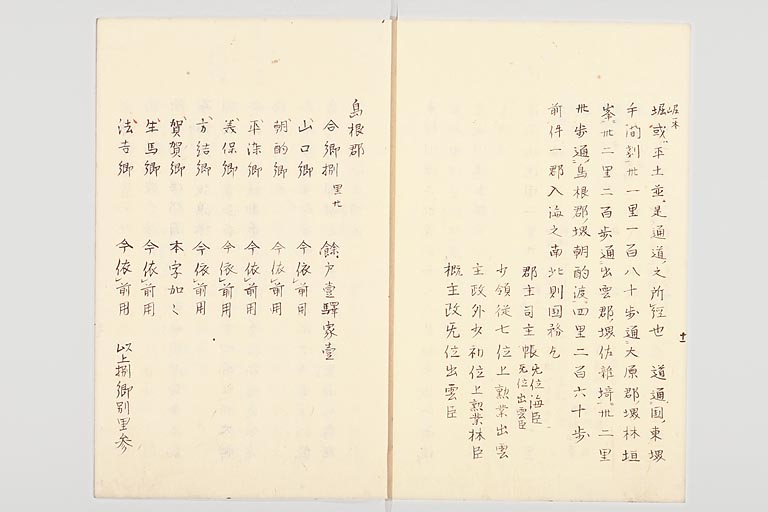 堀或平土並是通道之所経也　道通国東堺
手間剗卅一里一百八十歩通大原郡堺林垣
峯卅二里二百歩通出雲郡堺佐雑埼卅二里
卅歩通島根郡堺朝酌渡四里二百六十歩
前件一郡入海之南此則国務也
郡主司主帳無位海臣
無位出雲臣
少領従七位上勲業出雲
主政外少初位上勲業林臣
概主政无位出雲臣
十一
島根郡
合郷捌里廿　餘戸壹驛家壹
山口郷　今依前用
朝酌郷　今依前用
手染郷　今依前用
美保郷　今依前用
方結郷　今依前用
賀賀郷　本字加〻
生馬郷　今依前用
法吉郷　今依前用　以上捌郷別里参